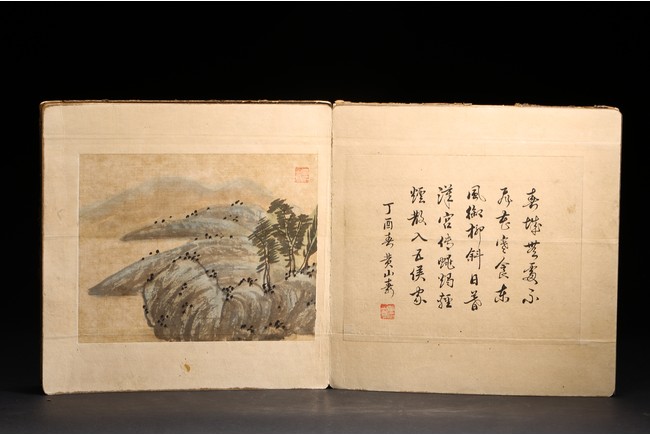 春城無處不
飛花寒食東
風御柳斜日暮
漢宮傳蠟燭輕
煙散入五侯家
丁酉春黃山壽